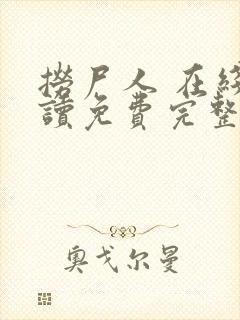 撈尸人 在綫
讀免費完整
奧戈尔曼